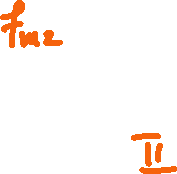 Fmz
II